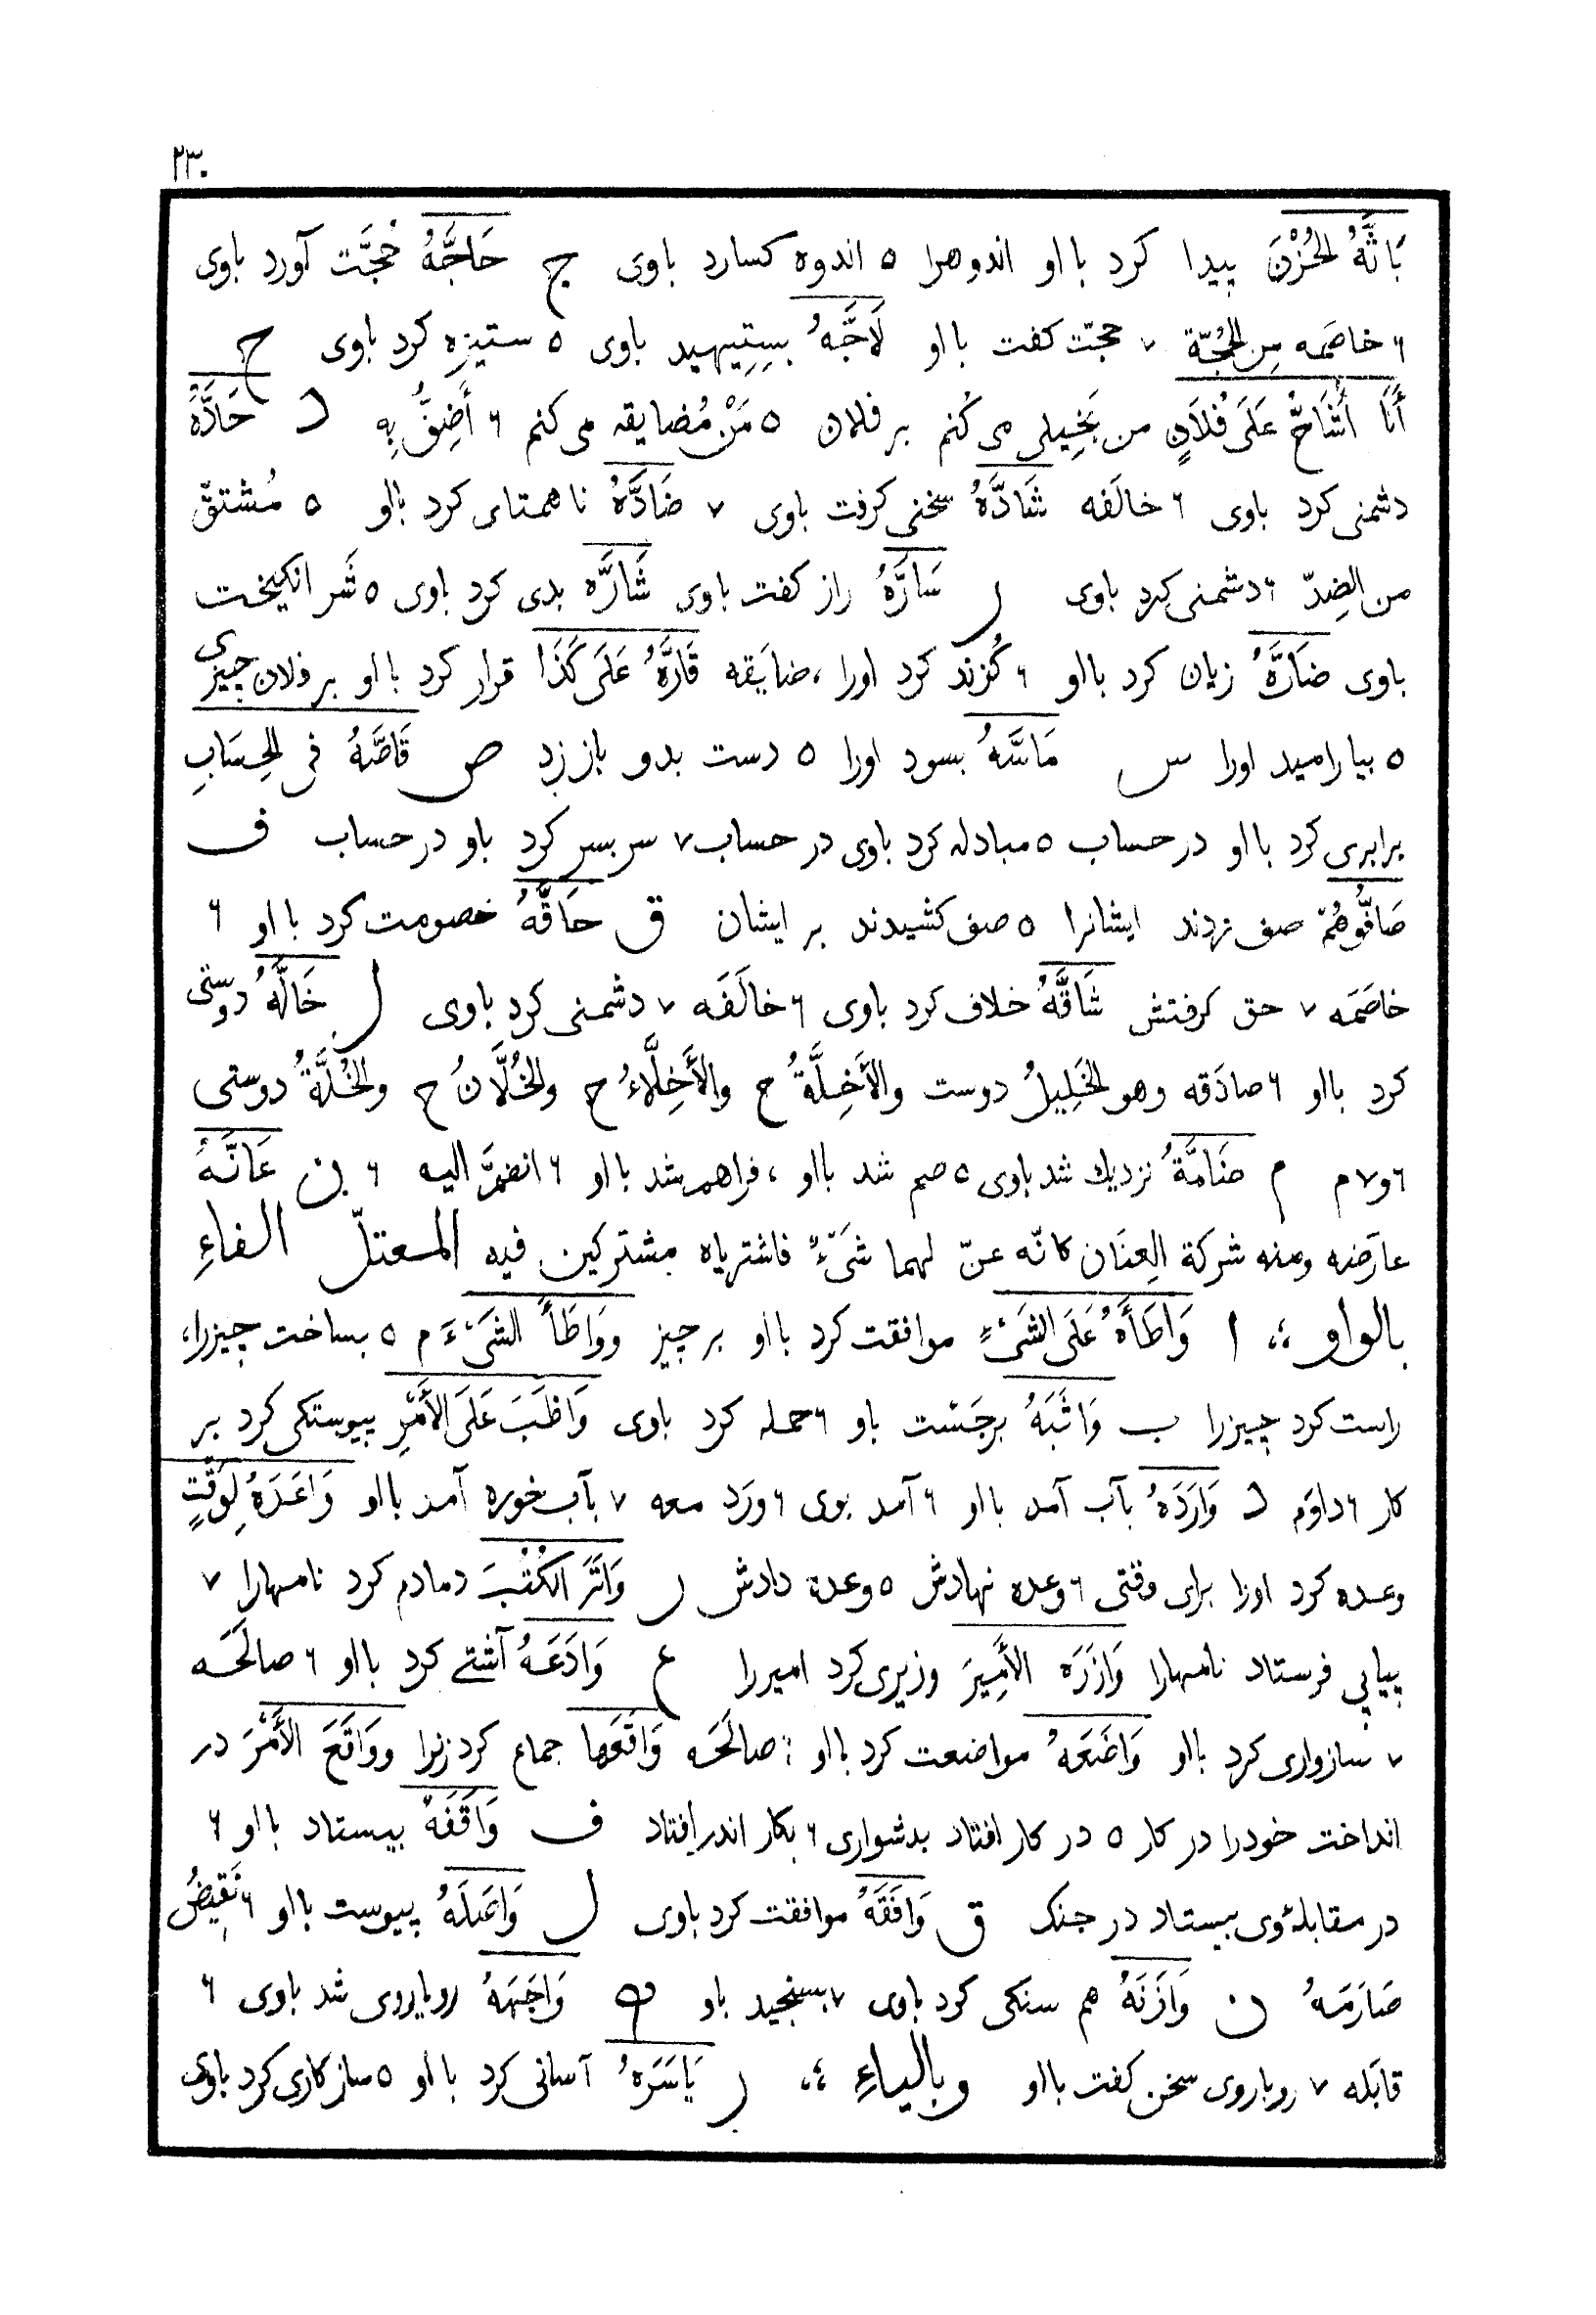 ٢٣٠
بَاثَّهُ الحُزْنَ پیدا کرد با او اندوهرا ٥ اندوه کسارد باوی ج حَاجَّهُ حُجَّت آورد باوی
٦ خاصَمه مِن الحُجّة ٧ حجّت کفت با او لَاجَّهُ بسِتِیهید باوی ٥ ستیزه کرد باوی ح
أَنَا أُشَاحُّ عَلَى فُلَانٍ من بَخِیلی می کُنم بر فلان ٥ مَنْ مُضایقه می کنم ٦ أَضِنُّ بِهِ د حَادَّهُ
دشمنی کرد باوی ٦ خالَفه شَادَّهُ سختی کرفت باوی ٧ ضَادَّهُ ناهمتای کرد بااو ٥ مُشتقّ
من الضِدّ ٦ دشمنی کرد باوی ر سَارَّهُ راز کفت باوی شَارَّه بدی کرد باوی ٥ شَر انکیخت
باوی ضَارَّهُ زیان کرد بااو ٦ کُزند کرد اورا ، ضایَقه قَارَّهُ عَلَى كَذَا قرار کرد با او بر فلان چیزی
٥ بیارامید اورا س مَاسَّهُ بسود اورا ٥ دست بدو باز زد ص قَاصَّهُ فی الحِسَابِ
برابری کرد با او در حساب ٥ مبادله کرد باوی در حساب ٧ سر بسر کرد باو در حساب ف
صَافُّوهُمْ صف زدند ایشانرا ٥ صف کشیدند بر ایشان ق حَاقَّهُ خصومت کرد با او ٦
خاصَمَه ٧ حق کرفتش شَاقَّهُ خلاف کرد باوی ٦ خالَفَه ٧ دشمنی کرد باوی ل خَالَّهُ دوستی
کرد بااو ٦ صادَقه وهو الخَلِیلُ دوست والأَخِلَّةُ ح والأَخِلَّاءُ ح والخُلَّانُ ح والخُلَّةُ دوستی
٦ و ٧ م م ضَامَّهُ نزدیك شد باوی ٥ ضم شد بااو ، فراهم شد با او ٦ انضمَّ الیه ٦ ن عَانَّهُ
عارَضه ومنه شركة العِنَان كانّه عنّ لهما شَیْءٌ فاشتریاه مشترکین فیه المعتلّ الفاءِ
بالواو ؛، ا وَاطَأَهُ عَلَى الشَیْءِ موافقت کرد با او بر چیز ووَاطَأَ الشَیْءَ م ٥ بساخت چیزرا،
راست کرد چیزرا ب وَاثَبَهُ برجَست باو ٦ حمله کرد باوی وَاظَبَ عَلَى الأَمْرِ پیوستکی کرد بر
کار ٦ داوَم د وَارَدَهُ بآب آمد با او ٦ آمد بوی ٦ ورَد معه ٧ بآب خوره آمد بااو وَاعَدَهُ لِوَقْتٍ
وعده کرد اورا برای وقتی ٦ وعده نهادش ٥ وعدة دادش ر وَاتَرَ الكُتُبَ دمادم کرد نامهارا ٧
پیاپی فرستاد نامهارا وَازَرَه الأَمِیرَ وزیری کرد امیررا ع وَادَعَهُ آشتے کرد بااو ٦ صالَحَه
٧ سازواری کرد بااو وَاضَعَهُ مواضعت کرد بااو ؛ صالَحَه وَاقَعَها جماع کرد زنرا ووَاقَعَ الأَمْرَ در
انداخت خودرا در کار ٥ در کار افتاد بدشواری ٦ بکار اندر اِفتاد ف وَاقَفَهُ بیستاد بااو ٦
در مقابلهٔ وی بیستاد در جنک ق وَافَقَهُ موافقت کرد باوی ل وَاصَلَهُ پیوست بااو ٦ نَقِیضُ
صَارَمَهُ ن وَازَنَهُ هم سنکی کرد باوی ٧ بسنجید باو ه وَاجَهَهُ رویاروی شد باوی ٦
قابَله ٧ روباروی سخن کفت بااو وبالیاءِ ؛، ر یَاسَرَهُ آسانی کرد با او ٥ ساز کاری کرد باوی